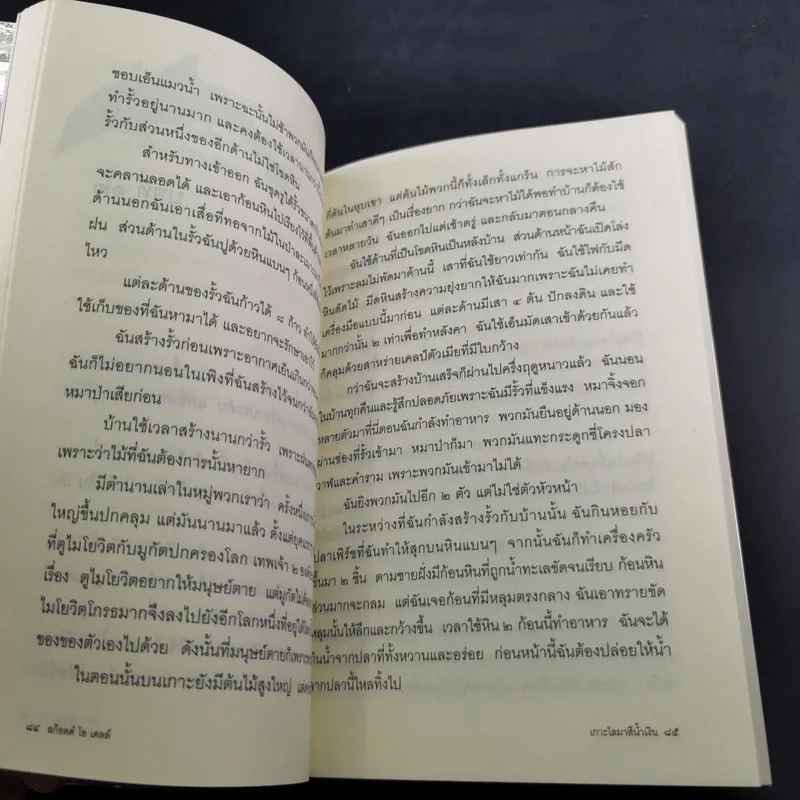 ชอบเอ็นแมวน้ำ เพราะฉะนั้นไม่ช้าพวกมันก็
ทำรั้วอยู่นานมาก และคงต้องใช้เวลานานกว่า
รั้วกับส่วนหนึ่งของอีกด้านไม่ใช่โขดหิน
สำหรับทางเข้าออก ฉันขุดรูใต้รั้ว
จะคลานลอดได้ และเอาก้อนหินไปเรียงไว้ที่พื้น
ด้านนอกฉันเอาเสื่อที่ทอจากไม้ในป่าละเมาะมา
ฝน ส่วนด้านในรั้วฉันปูด้วยหินแบนๆ ก้อน
ไหว
แต่ละด้านของรั้วฉันก้าวได้ ๘ ก้าว
ใช้เก็บของที่ฉันหามาได้ และอยากจะรักษาเอาไว้
ฉันสร้างรั้วก่อนเพราะอากาศเย็นเกินกว่าจะ
ฉันก็ไม่อยากนอนในเพิงที่ฉันสร้างไว้จนกว่า
หมาป่าเสียก่อน
บ้านใช้เวลาสร้างนานกว่ารั้ว เพราะฝน
เพราะว่าไม้ที่ฉันต้องการนั้นหายาก
มีตำนานเล่าในหมู่พวกเราว่า ครั้งหนึ่ง
ใหญ่ขึ้นปกคลุม แต่มันนานมาแล้ว ตั้งแต่ยุค
ที่ตูไมโยวิตกับมูกัตปกครองโลก เทพเจ้า ๒ องค์
เรื่อง ตูไมโยวิตอยากให้มนุษย์ตาย แต่มูกัตไม่
ไมโยวิตโกรธมากจึงลงไปยังอีกโลกหนึ่งที่อยู่ใต้
ของของตัวเองไปด้วย ดังนั้นที่มนุษย์ตายก็เพราะ
ในตอนนั้นบนเกาะยังมีต้นไม้สูงใหญ่ แต่
๘๔ สก๊อตต์ โอ เดลล์
กี่ต้นในหุบเขา แต่ต้นไม้พวกนี้ก็ทั้งเล็กทั้งแกร็น การจะหาไม้สัก
ต้นมาทำเสาดีๆ เป็นเรื่องยาก กว่าฉันจะหาไม้ได้พอทำบ้านก็ต้องใช้
เวลาหลายวัน ฉันออกไปแต่เช้าตรู่ และกลับมาตอนกลางคืน
ฉันใช้ด้านที่เป็นโขดหินเป็นหลังบ้าน ส่วนด้านหน้าฉันเปิดโล่ง
ไว้เพราะลมไม่พัดมาด้านนี้ เสาที่ฉันใช้ยาวเท่ากัน ฉันใช้ไฟกับมีด
หินตัดไม้ มีดหินสร้างความยุ่งยากให้ฉันมากเพราะฉันไม่เคยทำ
เครื่องมือแบบนี้มาก่อน แต่ละด้านมีเสา ๔ ต้น ปักลงดิน และใช้
มากกว่านั้น ๒ เท่าเพื่อทำหลังคา ฉันใช้เอ็นมัดเสาเข้าด้วยกันแล้ว
ก็คลุมด้วยสาหร่ายเคลป์ตัวเมียที่มีใบกว้าง
กว่าฉันจะสร้างบ้านเสร็จก็ผ่านไปครึ่งฤดูหนาวแล้ว ฉันนอน
ในบ้านทุกคืนและรู้สึกปลอดภัยเพราะฉันมีรั้วที่แข็งแรง หมาจิ้งจอก
หลายตัวมาที่นี่ตอนฉันกำลังทำอาหาร พวกมันยืนอยู่ด้านนอก มอง
ผ่านช่องที่รั้วเข้ามา หมาป่าก็มา พวกมันแทะกระดูกซี่โครงปลา
วาฬและคำราม เพราะพวกมันเข้ามาไม่ได้
ฉันยิงพวกมันไปอีก ๒ ตัว แต่ไม่ใช่ตัวหัวหน้า
ในระหว่างที่ฉันกำลังสร้างรั้วกับบ้านนั้น ฉันกินหอยกับ
ปลาเพิร์ชที่ฉันทำให้สุกบนหินแบนๆ จากนั้นฉันก็ทำเครื่องครัว
ขึ้นมา ๒ ชิ้น ตามชายฝั่งมีก้อนหินที่ถูกน้ำทะเลขัดจนเรียบ ก้อนหิน
ส่วนมากจะกลม แต่ฉันเจอก้อนที่มีหลุมตรงกลาง ฉันเอาทรายขัด
หลุมนั้นให้ลึกและกว้างขึ้น เวลาใช้หิน ๒ ก้อนนี้ทำอาหาร ฉันจะได้
กินน้ำจากปลาที่ทั้งหวานและอร่อย ก่อนหน้านี้ฉันต้องปล่อยให้น้ำ
จากปลานี้ไหลทิ้งไป
เกาะโลมาสีน้ำเงิน ๘๕